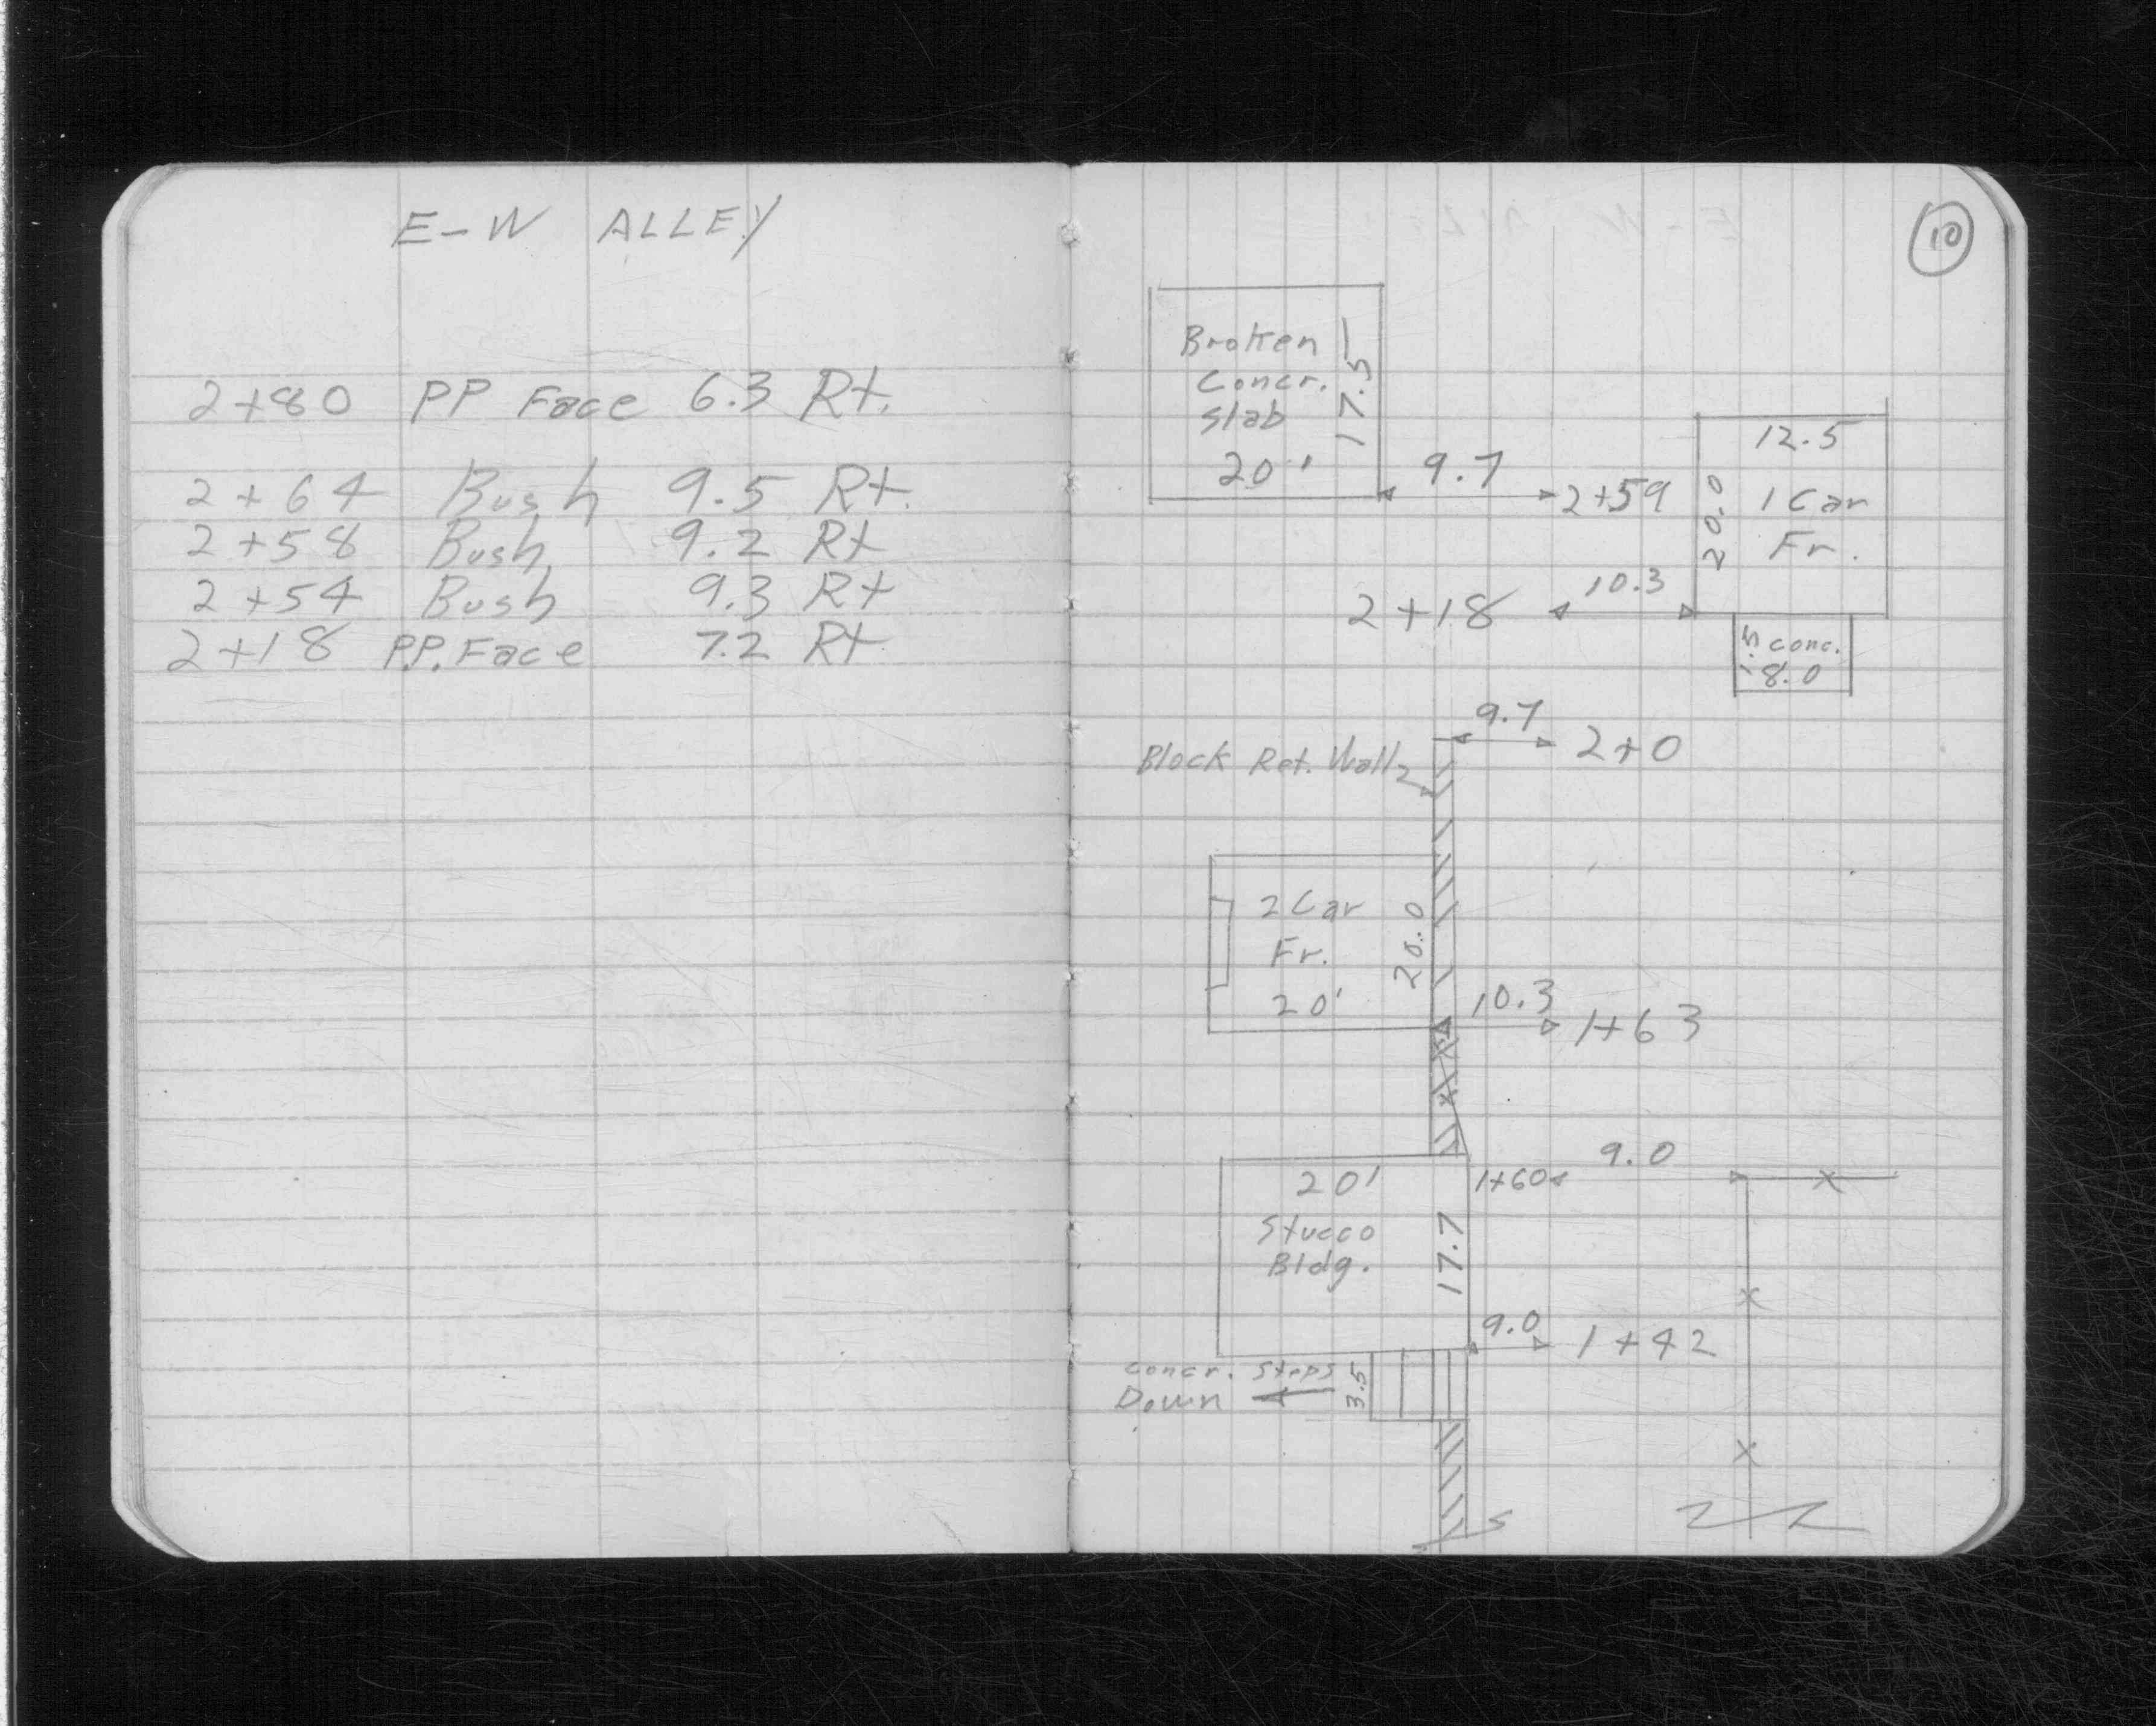 E-W ALLEY
2+80 PP Face 6.3 Rt.
2+64 Bush 9.5 Rt.
2+58 Bush 9.2 Rt
2+54 Bush 9.3 Rt
2+18 P.P. Face 7.2 Rt
10
Broken
Concr.
Slab
20'
17.5
9.7
2+59
12.5
1 Car
Fr.
20.0
2+18
10.3
conc.
8.0
1.5
9.7
2+0
Block Ret. Wall
2 Car
Fr.
20'
20.0
10.3
1+63
9.0
1+60
20'
Stucco
Bldg.
17.7
9.0
1+42
Concr. Steps
Down
3.5